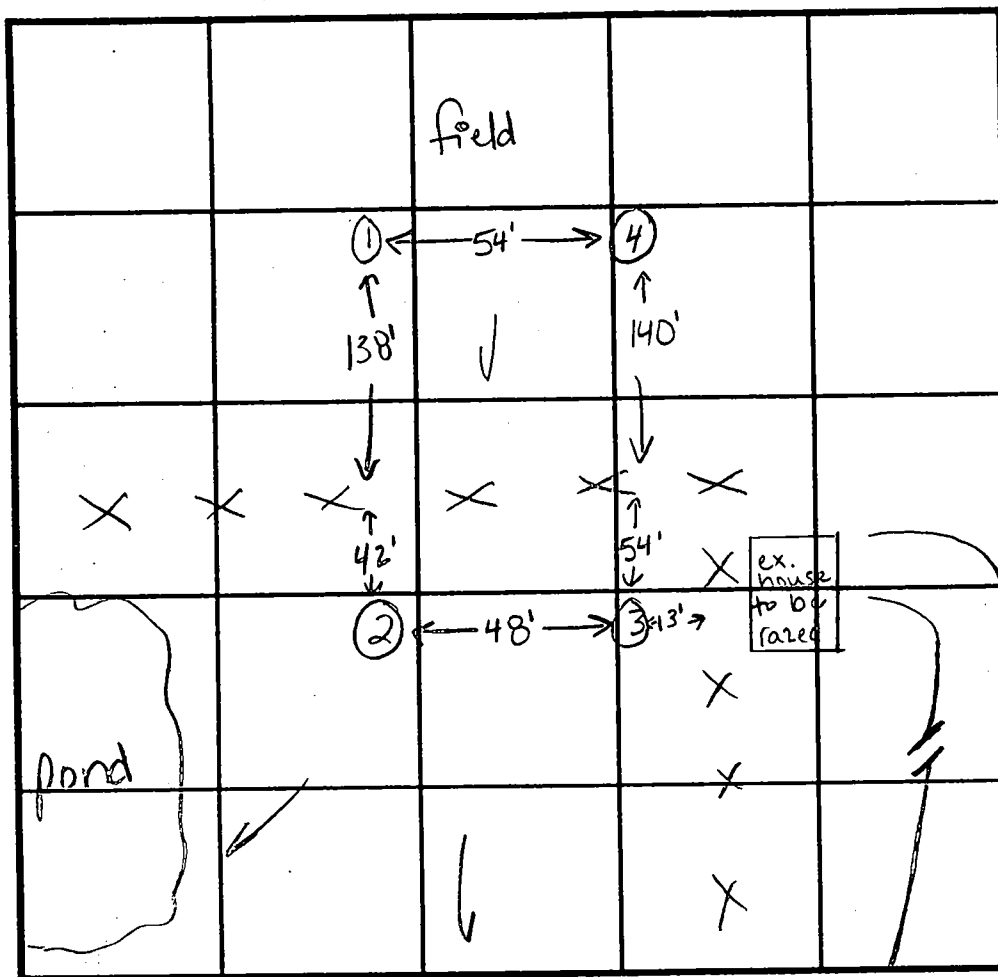 field
① 54' ④
138'
140'
42'
54'
ex.
house
to be
razed
② 48' ③ 13'
pond